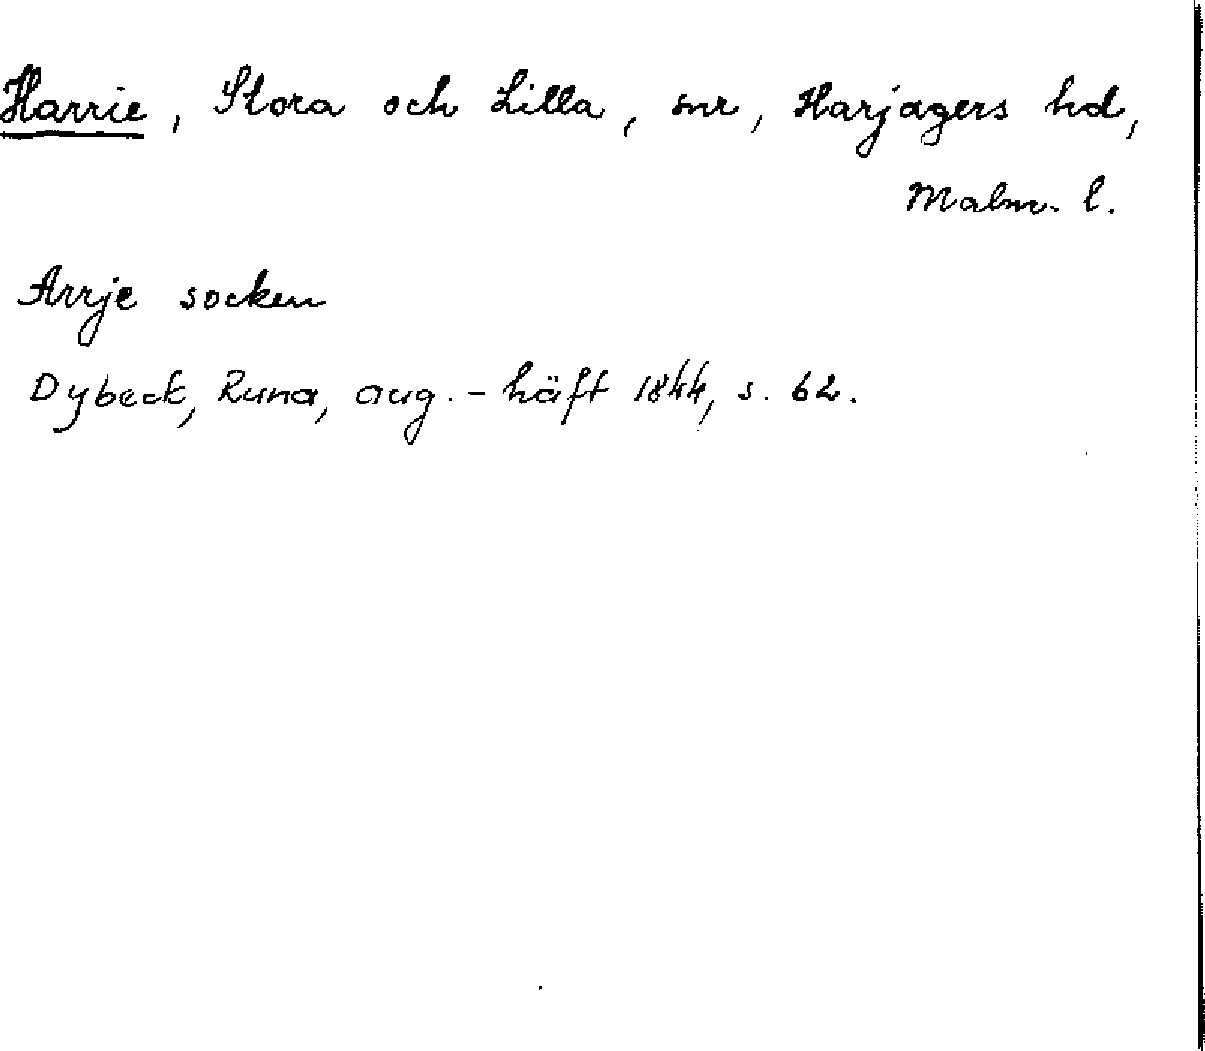 Harrie, Stora och Lilla, snr, Harjagers hd,
Malm. l.
Arrje socken
Dybeck, Runa, aug.-häft 1844, s. 62.